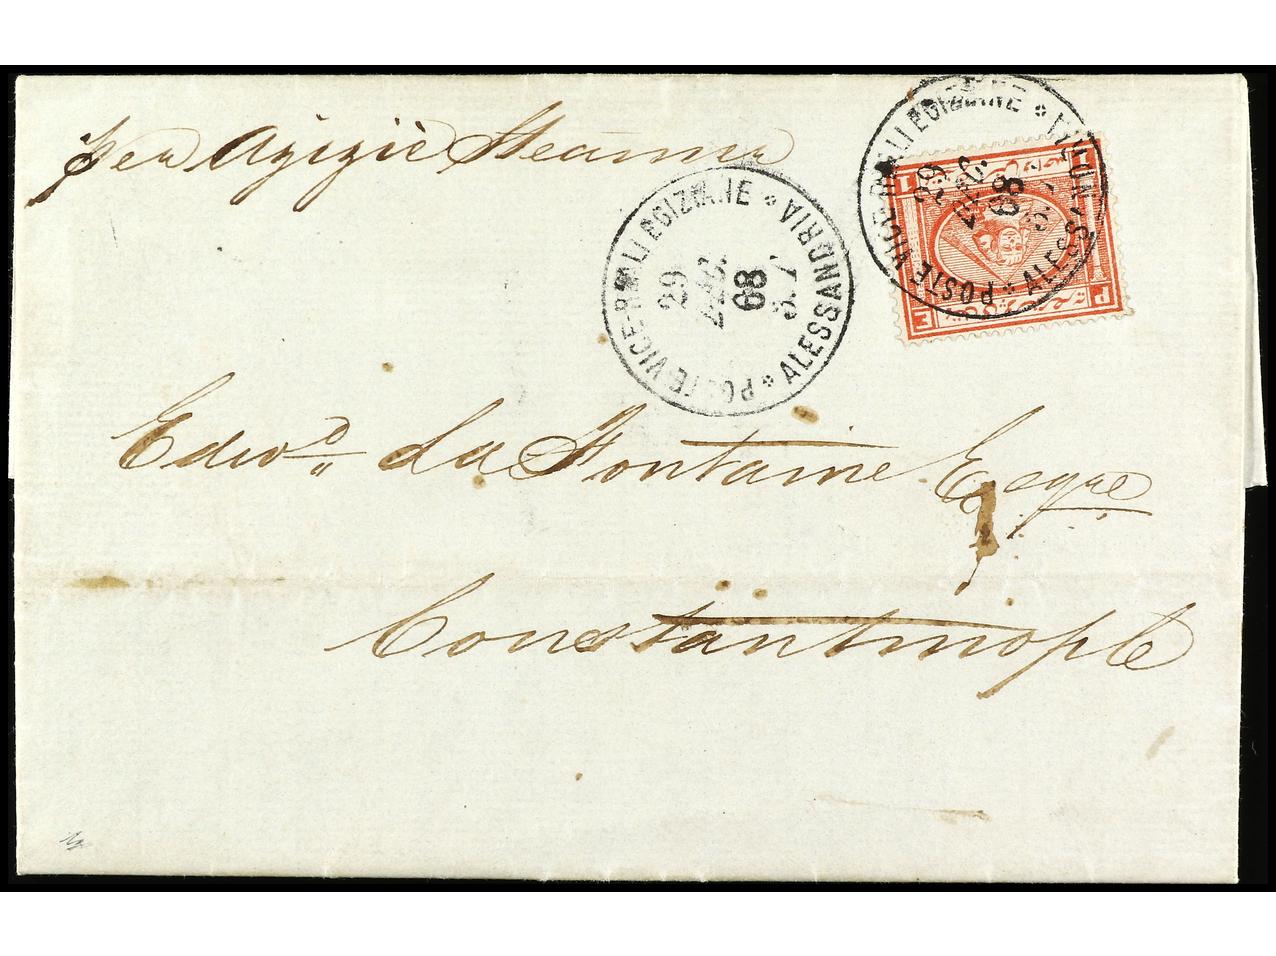 per Azizié Steamer
POSTE VICE-REALI EGIZIANE * ALESSANDRIA *
29
68
POSTE VICE-REALI EGIZIANE * ALESSANDRIA *
29
68
1
1
P
E
Edwd. La Fontaine Esqre
Constantinople